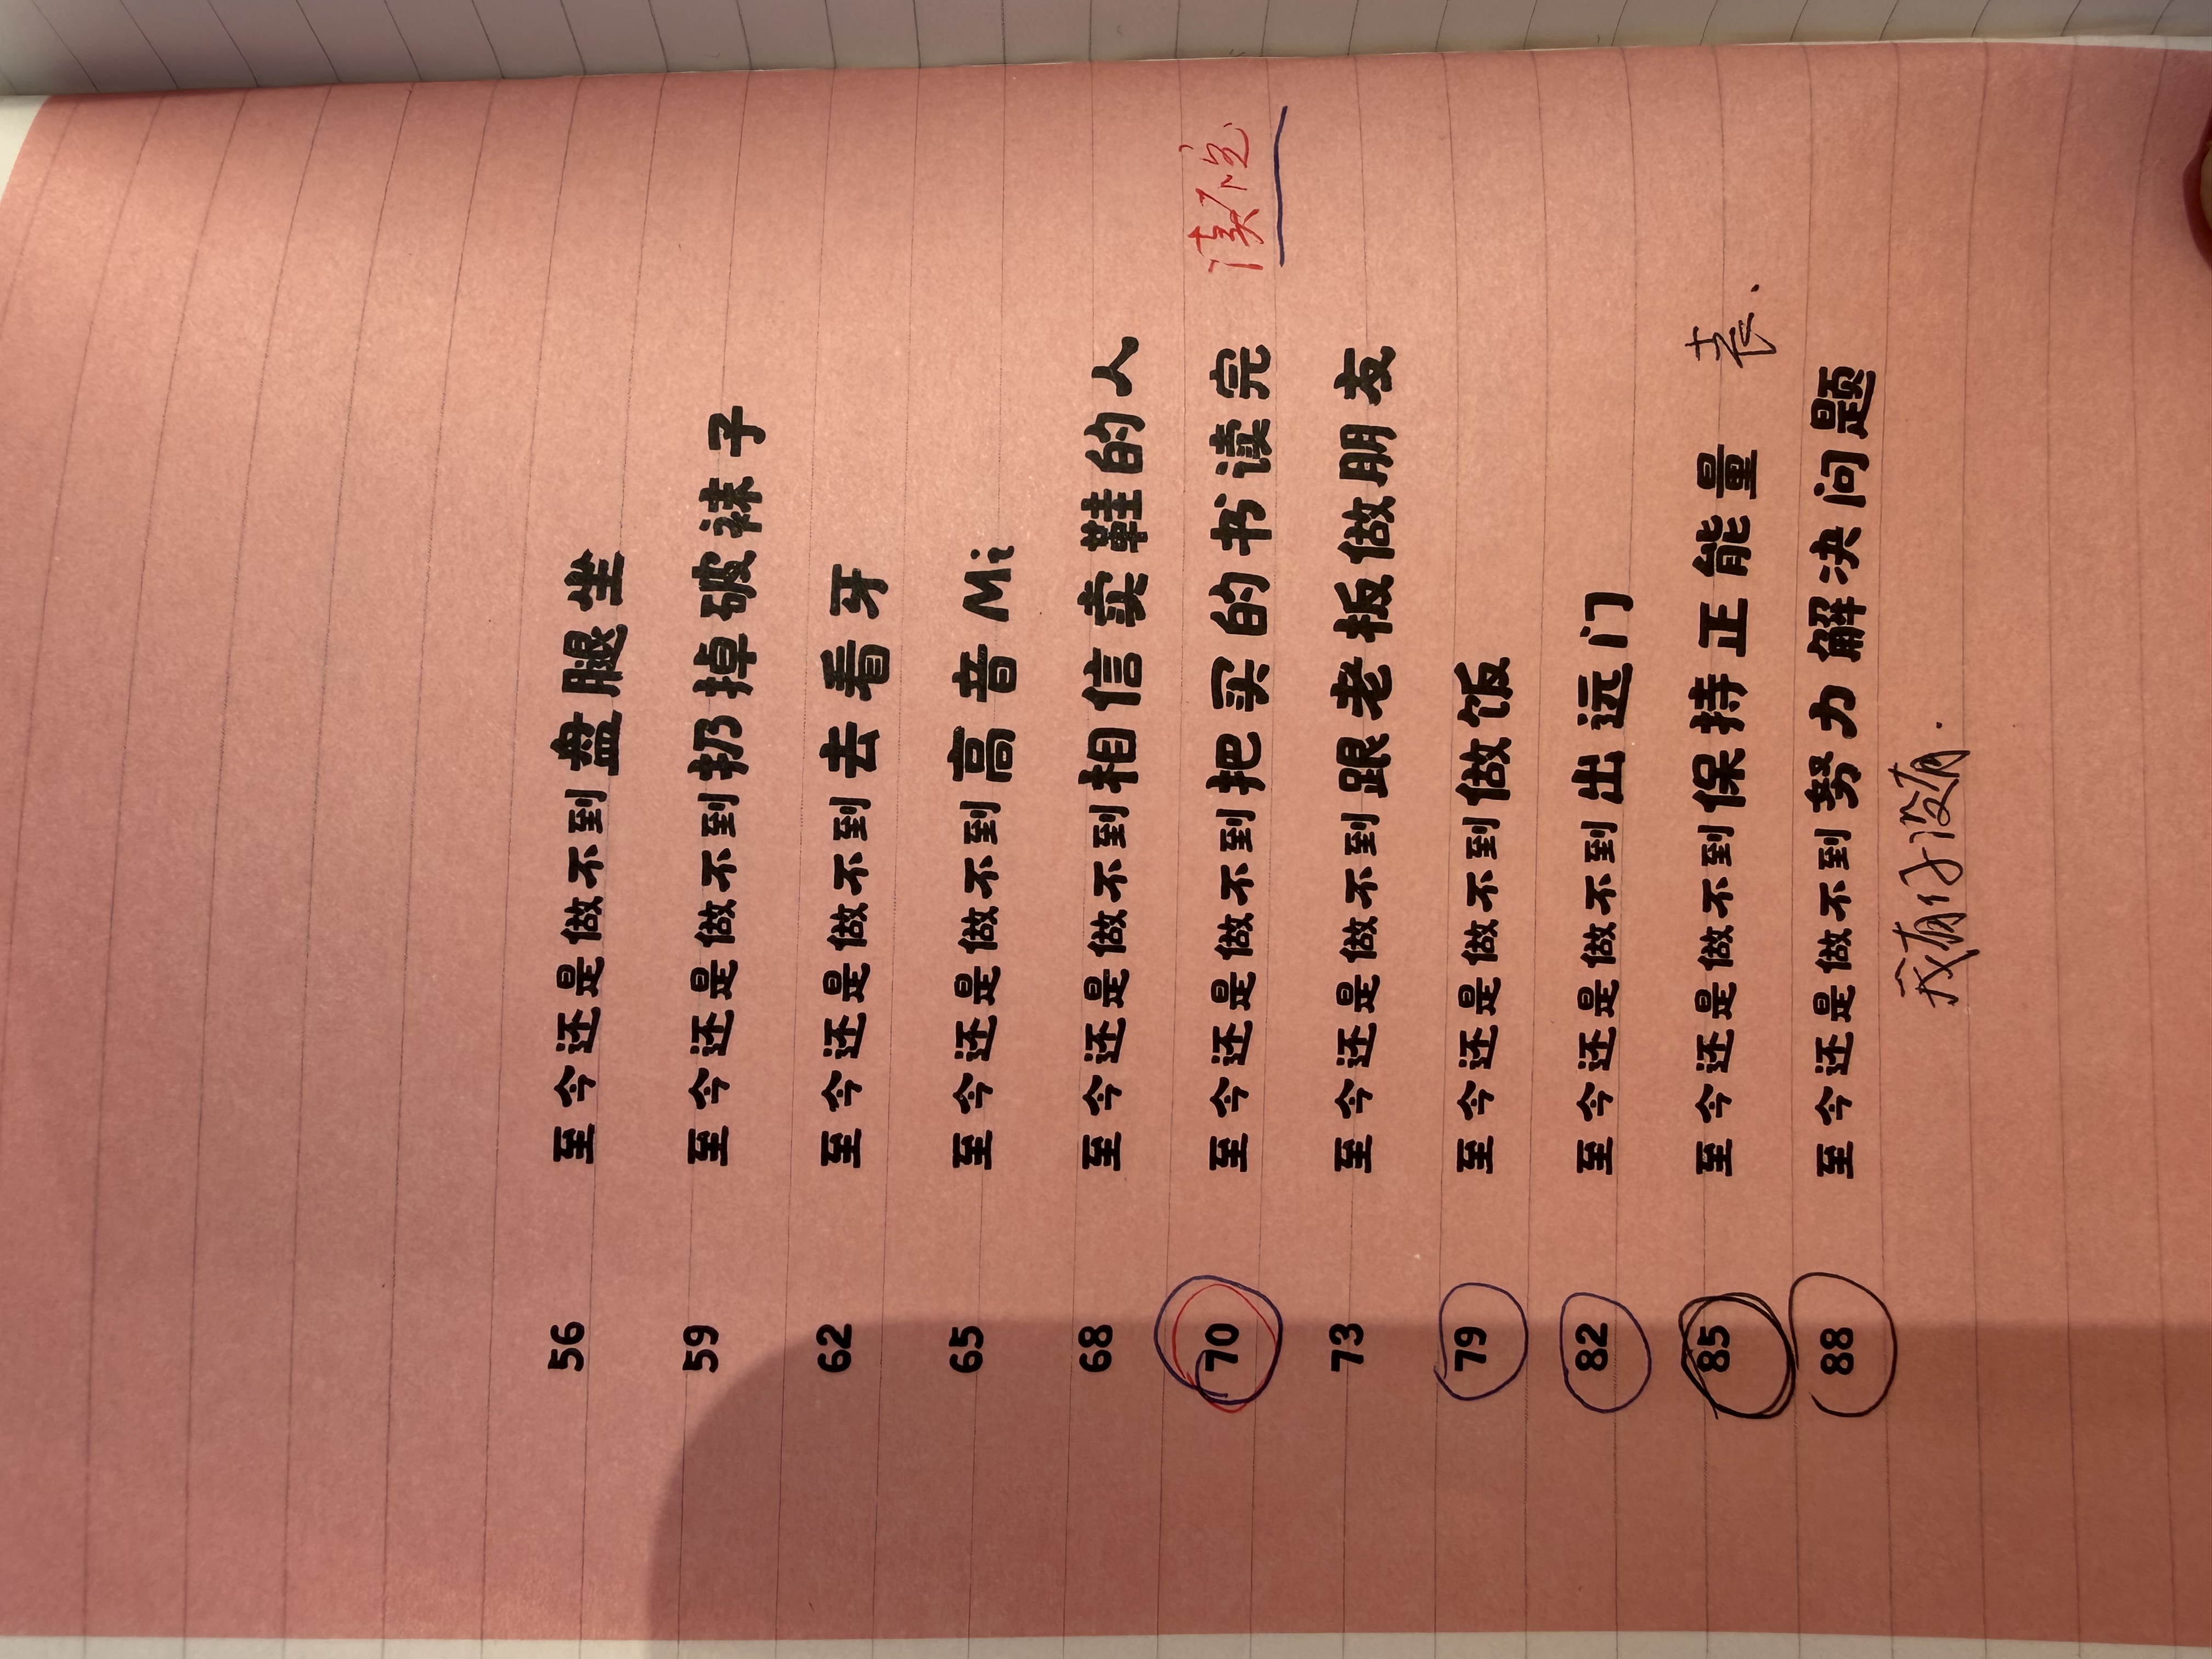 56 至今还是做不到盘腿坐
59 至今还是做不到扔掉破袜子
62 至今还是做不到去看牙
65 至今还是做不到高音Mi
68 至今还是做不到相信卖鞋的人
70 至今还是做不到把买的书读完 读完
73 至今还是做不到跟老板做朋友
79 至今还是做不到做饭
82 至今还是做不到出远门
85 至今还是做不到保持正能量 丧.
88 至今还是做不到努力解决问题
我有你没有.